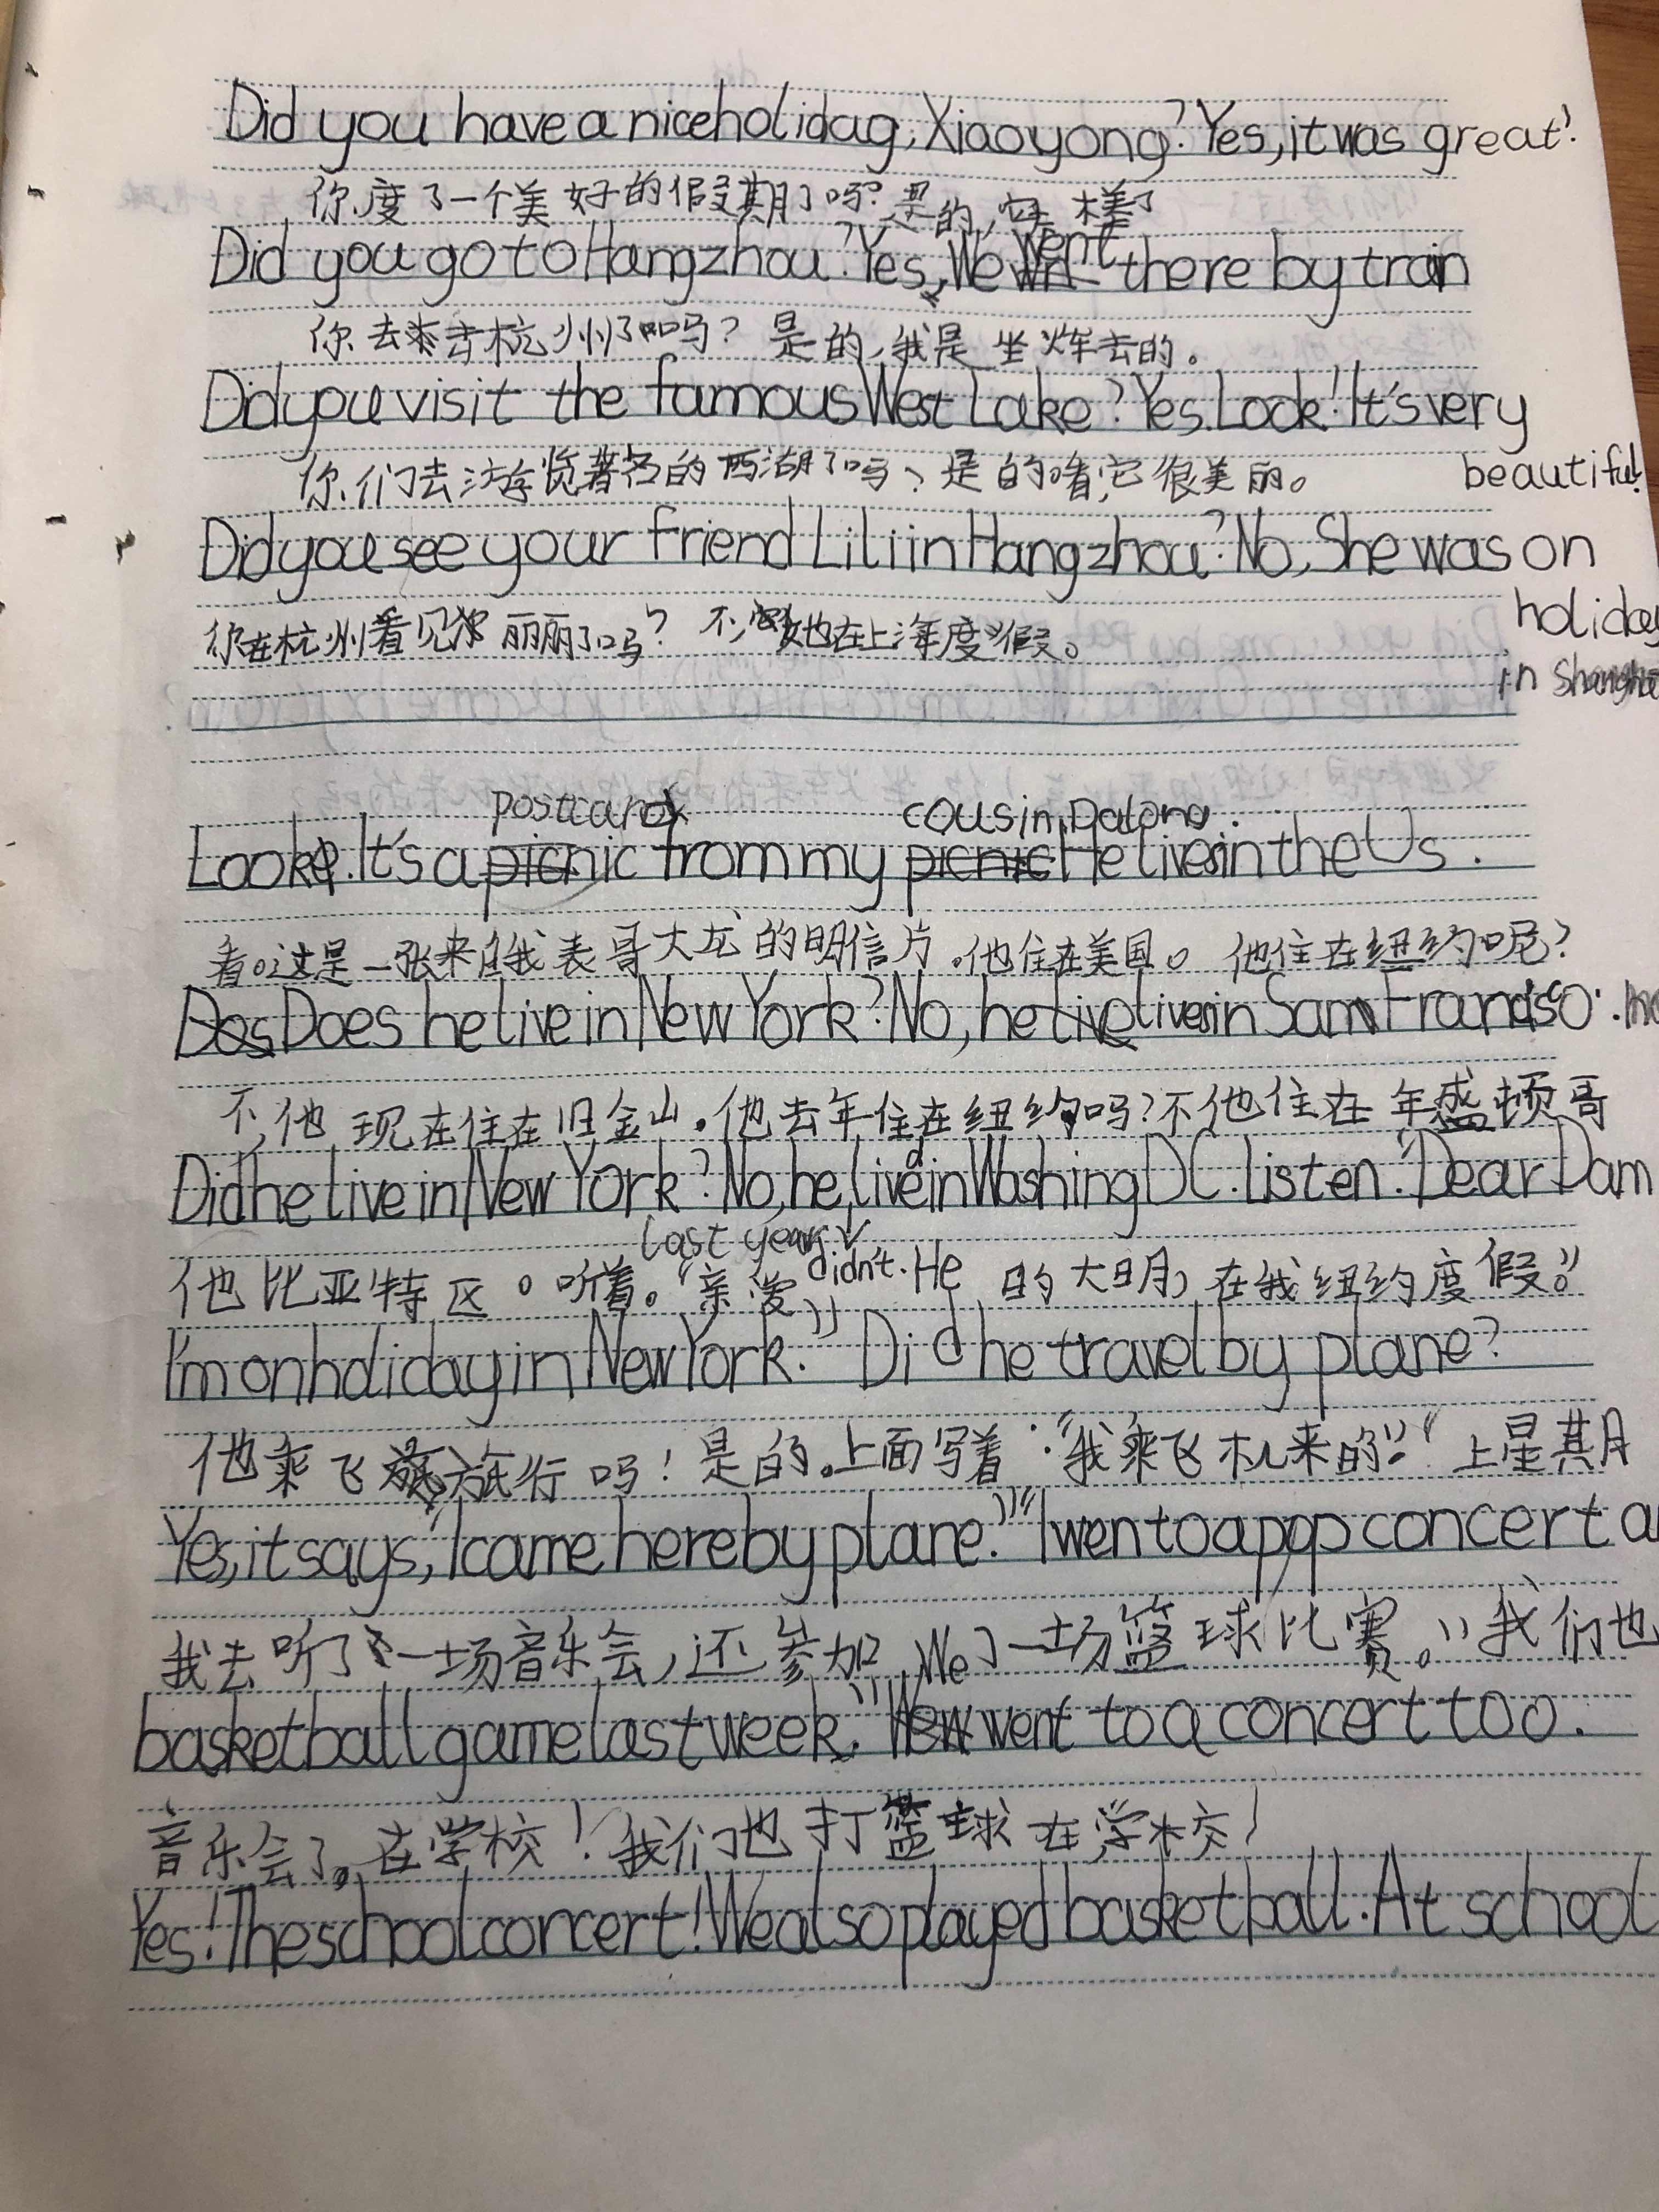 Did you have a nice holidag, Xiaoyong? Yes, it was great!
你度了一个美好的假期了吗?是的,
Did you go to Hangzhou? Yes, We went there by train
你去 杭州了吗?是的,我是坐火车去的。
Did you visit the famous West Lake? Yes. Look! It's very
beautiful!
你们去游览著名的西湖了吗、是的。看,它很美丽。
Did you see your friend Lili in Hangzhou? No, She was on
holiday
in Shanghai
你在杭州看见 丽丽了吗?不, 她在上海度假。
postcard cousin, Dalong.
Look. It's a picnic from my picnic He lives in the Us.
看。这是一张来自我表哥大龙的明信片。他住在美国。他住在纽约呢?
Dos Does he live in New York? No, he live lives in San Francisco.
不,他现在住在旧金山。他去年住在纽约吗?不他住在年盛顿哥
Did he live in New York? No, he lived in Washing DC. Listen. "Dear Dam
last year didn't. He
他比亚特区。听着。"亲爱的大明,在我纽约度假。"
I'm on holiday in New York." Did he travel by plane?
他乘飞 旅行吗!是的。上面写着:"我乘飞机来的。" 上星期
Yes, it says, "I came here by plane." "I wen to a pop concert a
我去听了一场音乐会,还参加了一场篮球比赛。"我们也
We
basketball game last week." went to a concert too.
音乐会了。在学校!我们也打篮球在学校!
Yes! The school concert! We also played basketball. At school